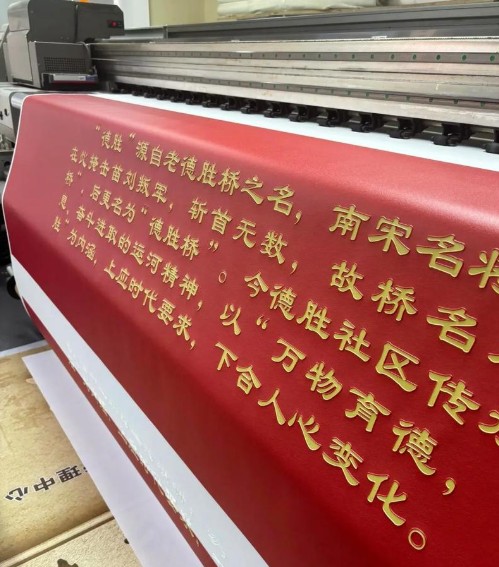 “德胜“源自老德胜桥之名，南宋名将
在此狙击苗刘叛军，斩首无数，故桥名
桥”，后更名为“德胜桥”。今德胜社区传
奋斗进取的运河精神，以“万物育德，
为内涵，上应时代要求，下合人心变化。
理中心